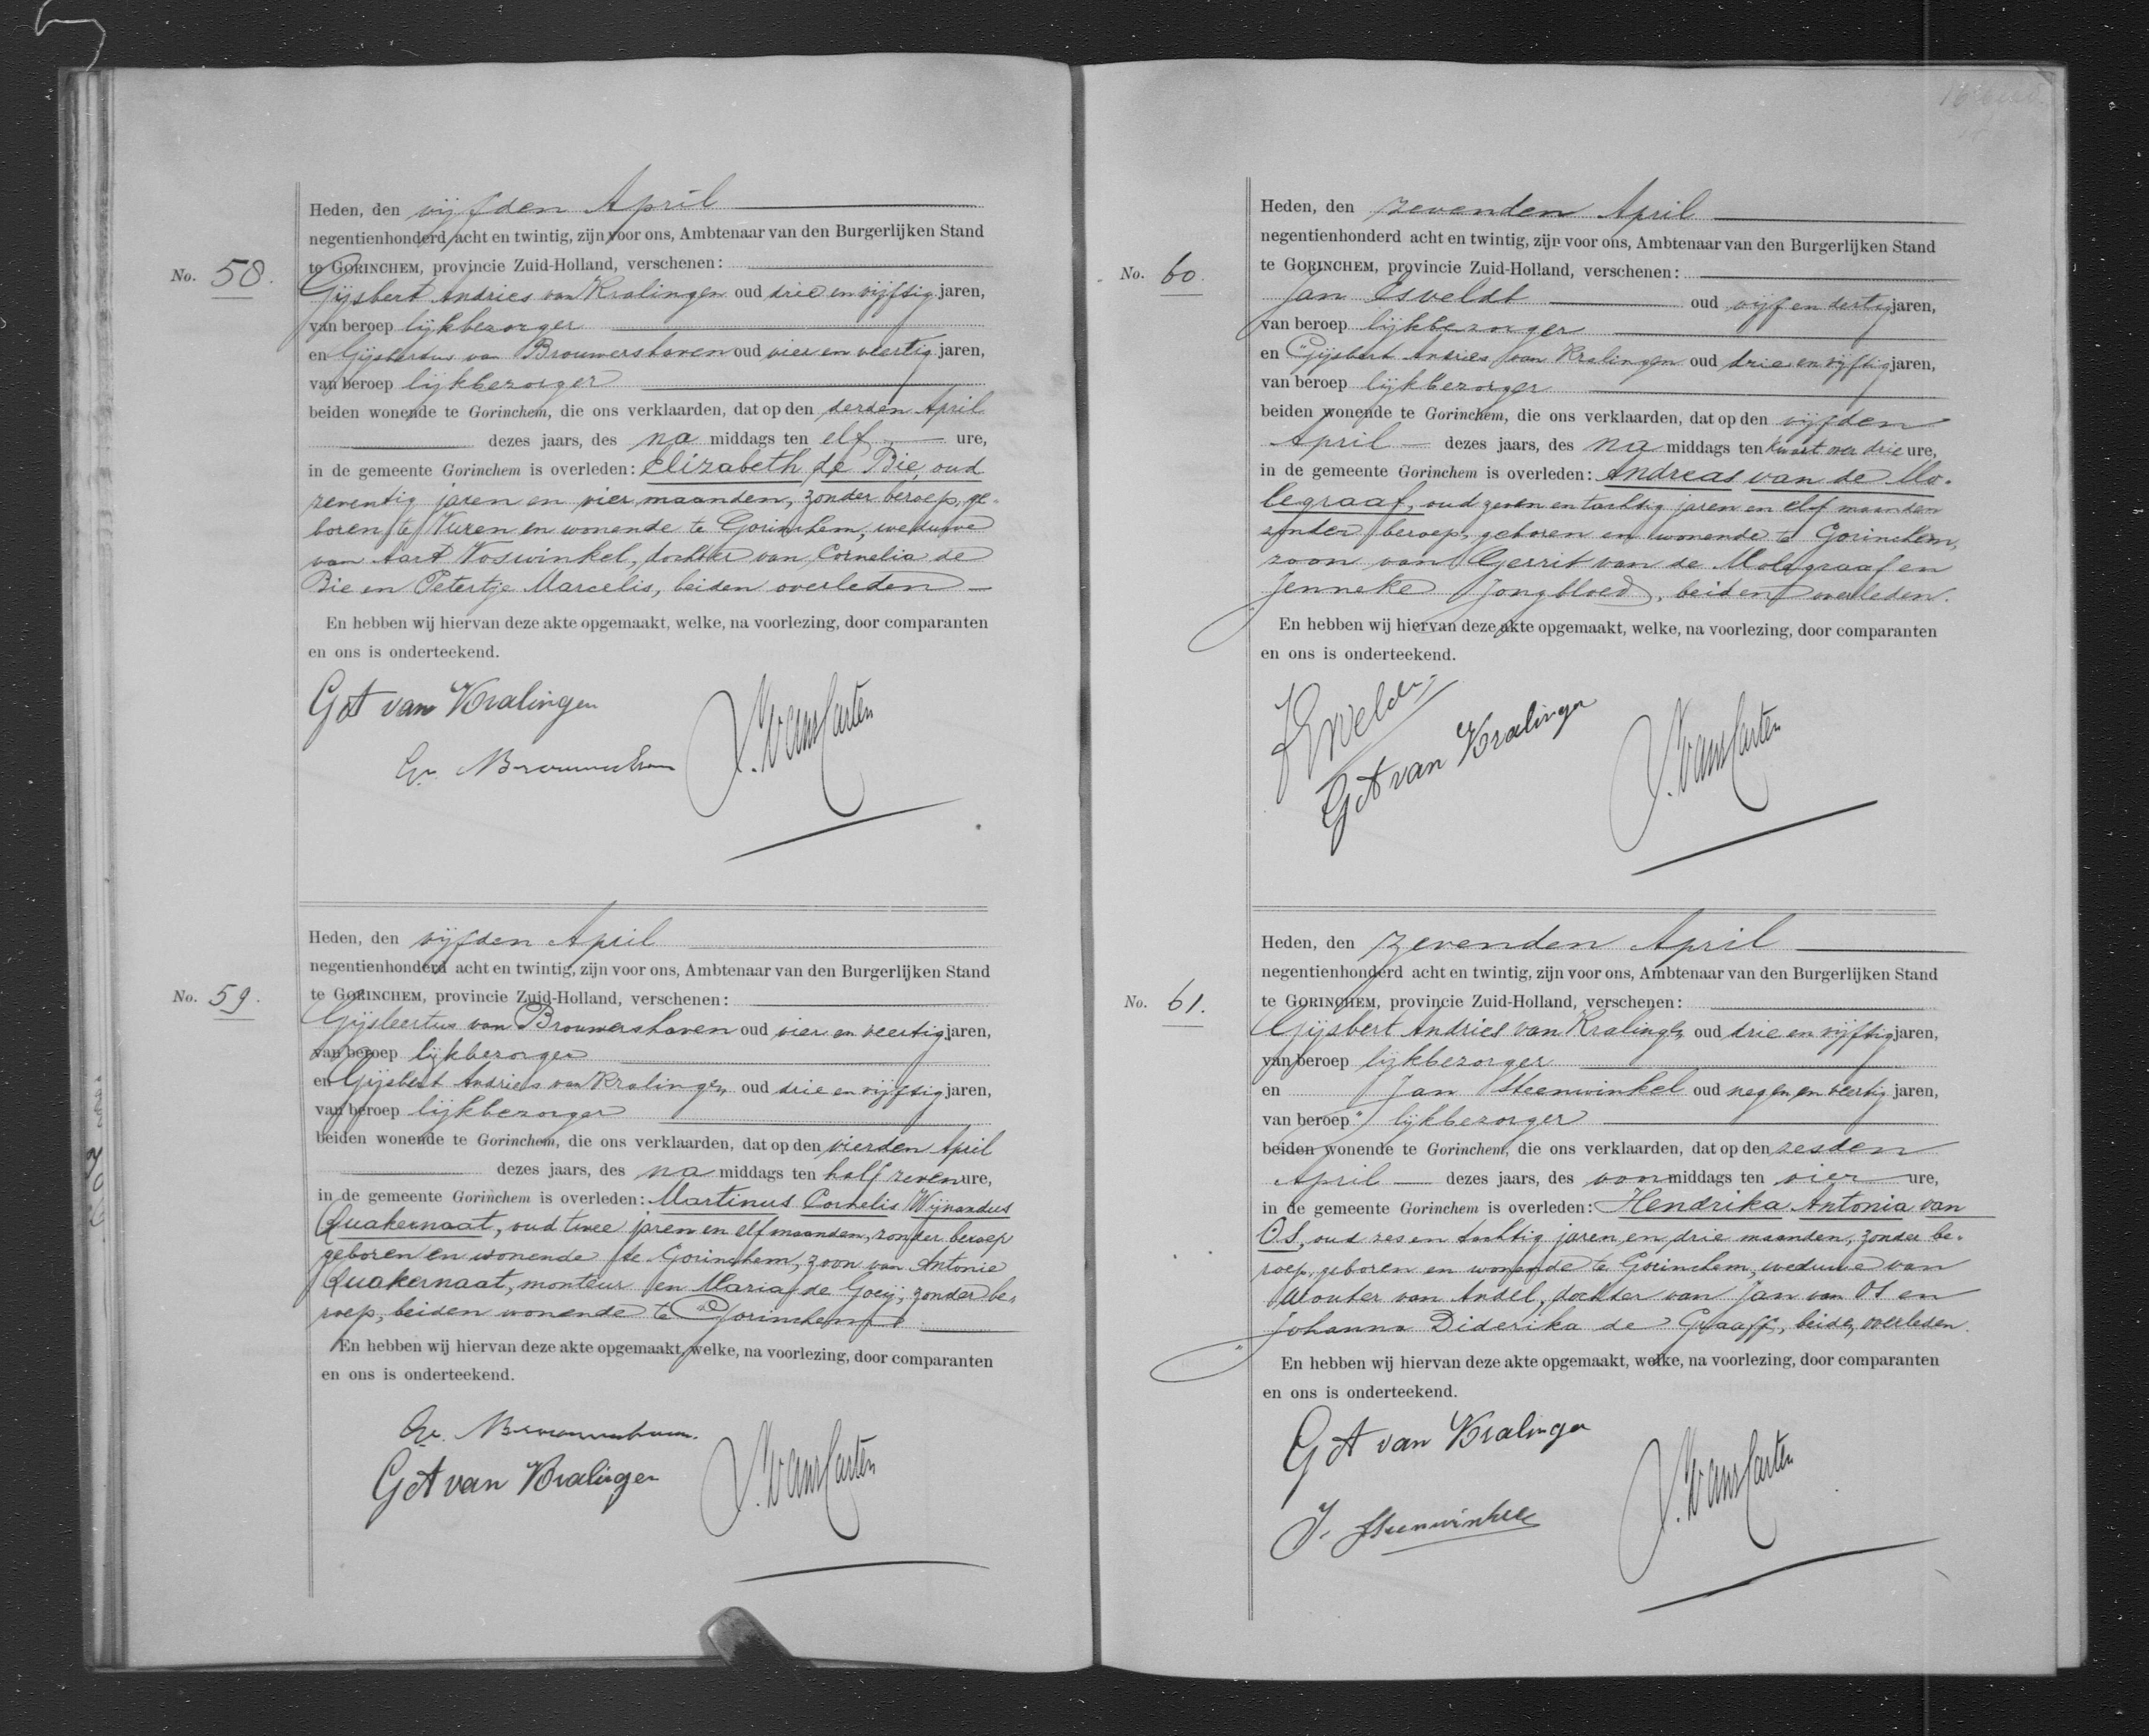 No. 58.
Heden, den vijfden April
negentienhonderd acht en twintig, zijn voor ons, Ambtenaar van den Burgerlijken Stand
te GORINCHEM, provincie Zuid-Holland, verschenen:
Gijsbert Andries van Kralingen oud drie en vijftig jaren,
van beroep lijkbezorger
en Gijsbertus van Brouwershaven oud vier en veertig jaren,
van beroep lijkbezorger
beiden wonende te Gorinchem, die ons verklaarden, dat op den derden April
dezes jaars, des na middags ten elf ure,
in de gemeente Gorinchem is overleden: Elizabeth de Bie, oud
zeventig jaren en vier maanden, zonder beroep, ge-
boren te Vuren en wonende te Gorinchem, weduwe
van Aart Voswinkel, dochter van Cornelia de
Bie en Petertje Marcelis, beiden overleden
En hebben wij hiervan deze akte opgemaakt, welke, na voorlezing, door comparanten
en ons is onderteekend.
GA van Kralingen
No. 59.
Heden, den vijfden April
negentienhonderd acht en twintig, zijn voor ons, Ambtenaar van den Burgerlijken Stand
te GORINCHEM, provincie Zuid-Holland, verschenen:
Gijsbertus van Brouwershaven oud vier en veertig jaren,
van beroep lijkbezorger
en Gijsbert Andries van Kralingen oud drie en vijftig jaren,
van beroep lijkbezorger
beiden wonende te Gorinchem, die ons verklaarden, dat op den vierden April
dezes jaars, des na middags ten half zeven ure,
in de gemeente Gorinchem is overleden: Martinus Cornelis Wijnandus
Quakernaat, oud twee jaren en elf maanden, zonder beroep
geboren en wonende te Gorinchem, zoon van Antonie
Quakernaat, monteur en Maria de Goeij, zonder be-
roep, beiden wonende te Gorinchem
En hebben wij hiervan deze akte opgemaakt, welke, na voorlezing, door comparanten
en ons is onderteekend.
GA van Kralingen
No. 60.
Heden, den zevenden April
negentienhonderd acht en twintig, zijn voor ons, Ambtenaar van den Burgerlijken Stand
te GORINCHEM, provincie Zuid-Holland, verschenen:
Jan Esveldt oud vijf en dertig jaren,
van beroep lijkbezorger
en Gijsbert Andries van Kralingen oud drie en vijftig jaren,
van beroep lijkbezorger
beiden wonende te Gorinchem, die ons verklaarden, dat op den vijfden
April dezes jaars, des na middags ten kwart over drie ure,
in de gemeente Gorinchem is overleden: Andreas van de Mo-
legraaf, oud zeven en tachtig jaren en elf maanden
zonder beroep, geboren en wonende te Gorinchem,
zoon van Gerrit van de Molegraaf en
Jenneke Jongbloed, beiden overleden.
En hebben wij hiervan deze akte opgemaakt, welke, na voorlezing, door comparanten
en ons is onderteekend.
GA van Kralingen
No. 61.
Heden, den zevenden April
negentienhonderd acht en twintig, zijn voor ons, Ambtenaar van den Burgerlijken Stand
te GORINCHEM, provincie Zuid-Holland, verschenen:
Gijsbert Andries van Kralingen oud drie en vijftig jaren,
van beroep lijkbezorger
en Jan Steenwinkel oud negen en veertig jaren,
van beroep lijkbezorger
beiden wonende te Gorinchem, die ons verklaarden, dat op den zesden
April dezes jaars, des voormiddags ten vier ure,
in de gemeente Gorinchem is overleden: Hendrika Antonia van
Os, oud zes en tachtig jaren en drie maanden, zonder be-
roep, geboren en wonende te Gorinchem, weduwe van
Wouter van Andel, dochter van Jan van Os en
Johanna Diderika de Graaff, beiden overleden.
En hebben wij hiervan deze akte opgemaakt, welke, na voorlezing, door comparanten
en ons is onderteekend.
GA van Kralingen
J. Steenwinkel